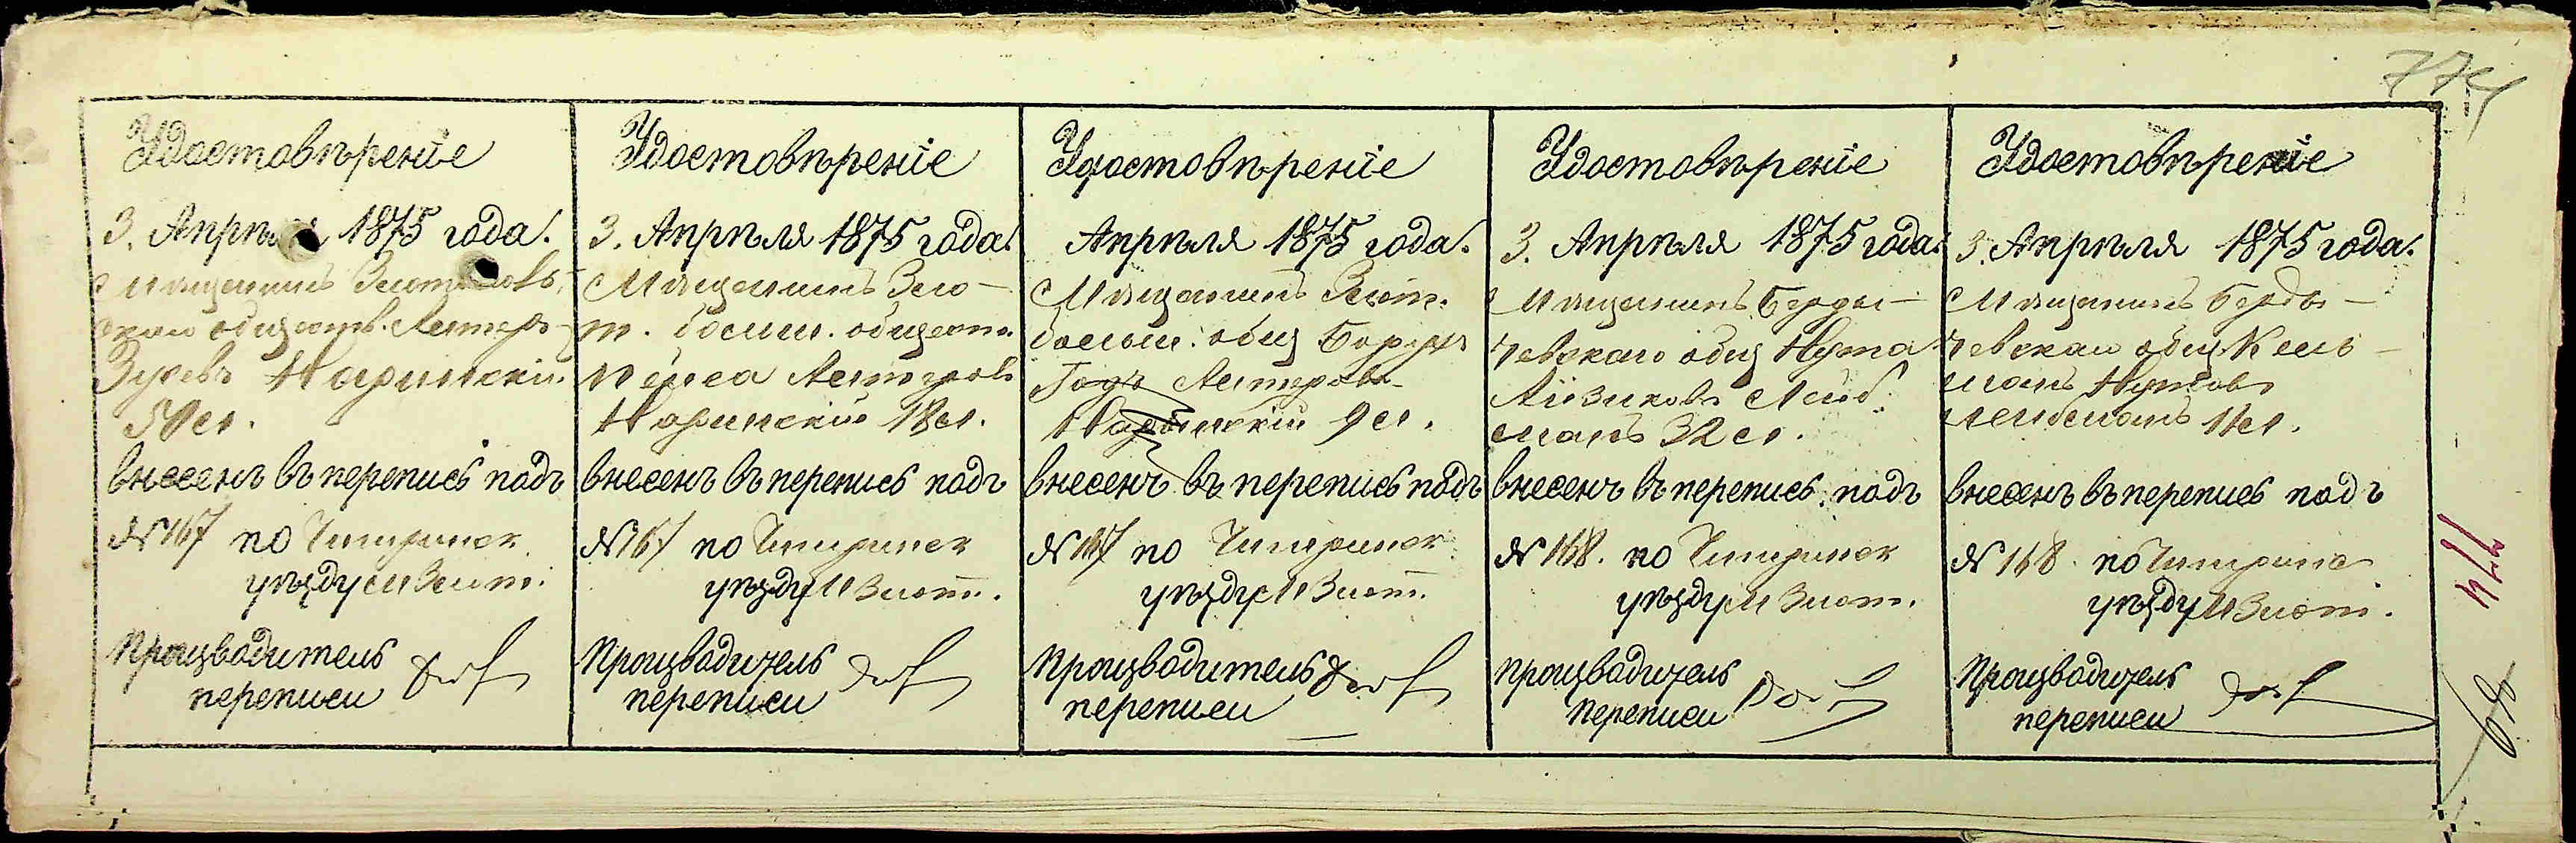 774
Удостовѣреніе
3. Апрѣля 1875 года.
Мѣщанинъ
скаго обществ. Лейзеръ
Зусевъ Наринскій
50 л.
внесенъ въ перепись подъ
№ 167 по Чигиринск.
уѣзду М Злот.
Производитель
переписи
Удостовѣреніе
3. Апрѣля 1875 года.
Мѣщанинъ Зло-
т. обществ.
Лейзеровъ
Наринскій 18 л.
внесенъ въ перепись подъ
№ 167 по Чигиринск
уѣзду М Злот.
Производитель
переписи
Удостовѣреніе
Апрѣля 1875 года.
Мѣщанинъ Злот.
общ
Лейзеровъ
Наринскій 9 л.
внесенъ въ перепись подъ
№ 167 по Чигиринск.
уѣзду М Злот.
Производитель
переписи
Удостовѣреніе
3. Апрѣля 1875 года.
Мѣщанинъ Берди-
чевскаго общ Нута
Лейб.
манъ 32 л.
внесенъ въ перепись подъ
№ 168. по Чигиринск
уѣзду М Злот.
Производитель
переписи
Удостовѣреніе
3. Апрѣля 1875 года.
Мѣщанинъ Берди-
чевскаго общ Кель-
манъ Нутовъ
Лейбманъ 11 л.
внесенъ въ перепись подъ
№ 168. по Чигиринс
уѣзду М Злот.
Производитель
переписи
774
68